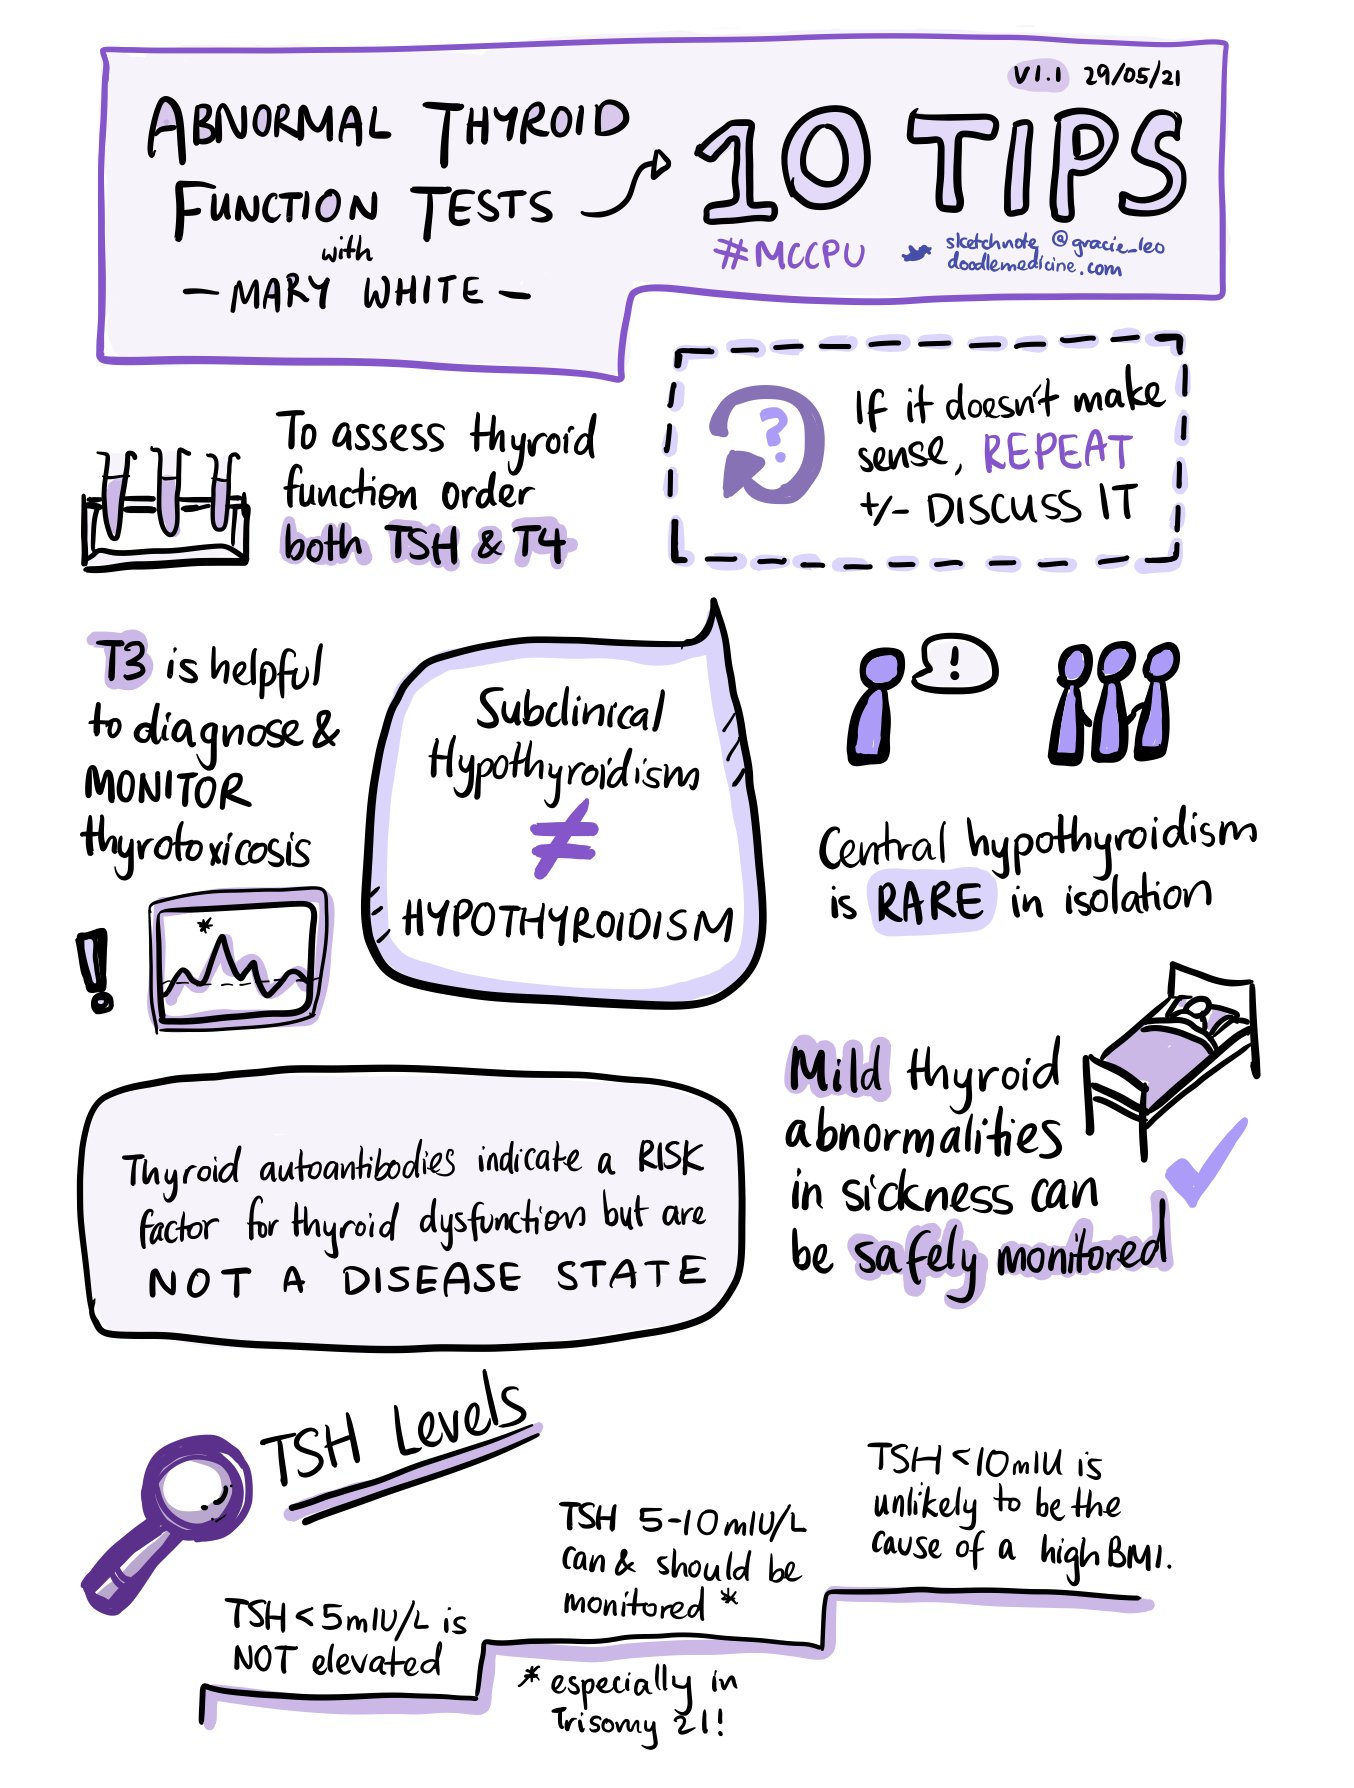 V1.1 29/05/21
ABNORMAL THYROID
FUNCTION TESTS
with
— MARY WHITE —
10 TIPS
#MCCPU
sketchnote @gracie_leo
doodlemedicine.com
To assess thyroid
function order
both TSH & T4
?
If it doesn't make
sense, REPEAT
+/- DISCUSS IT
T3 is helpful
to diagnose &
MONITOR
thyrotoxicosis
!
*
Subclinical
Hypothyroidism
≠
HYPOTHYROIDISM
!
Central hypothyroidism
is RARE in isolation
Mild thyroid
abnormalities
in sickness can
be safely monitored
Thyroid autoantibodies indicate a RISK
factor for thyroid dysfunction but are
NOT A DISEASE STATE
TSH Levels
TSH < 5mIU/L is
NOT elevated
TSH 5-10mIU/L
can & should be
monitored *
* especially in
Trisomy 21!
TSH <10mIU is
unlikely to be the
cause of a high BMI.